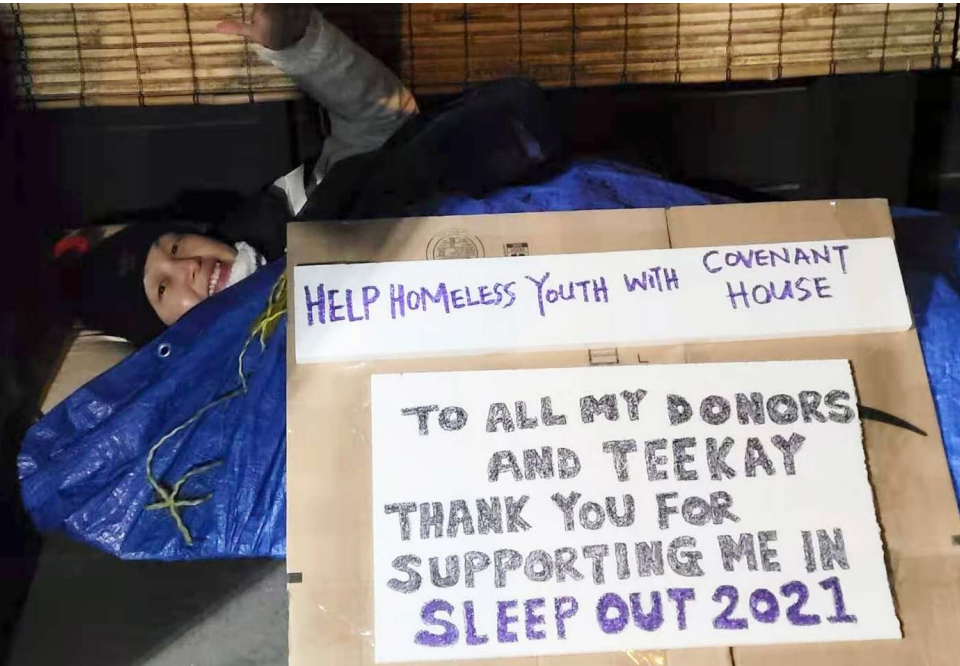 HELP HOMELESS YOUTH WITH COVENANT
HOUSE
TO ALL MY DONORS
AND TEEKAY
THANK YOU FOR
SUPPORTING ME IN
SLEEP OUT 2021